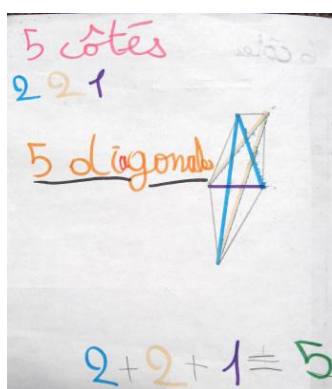 5 côtés
2 2 1
5 diagonales
2+2+1=5